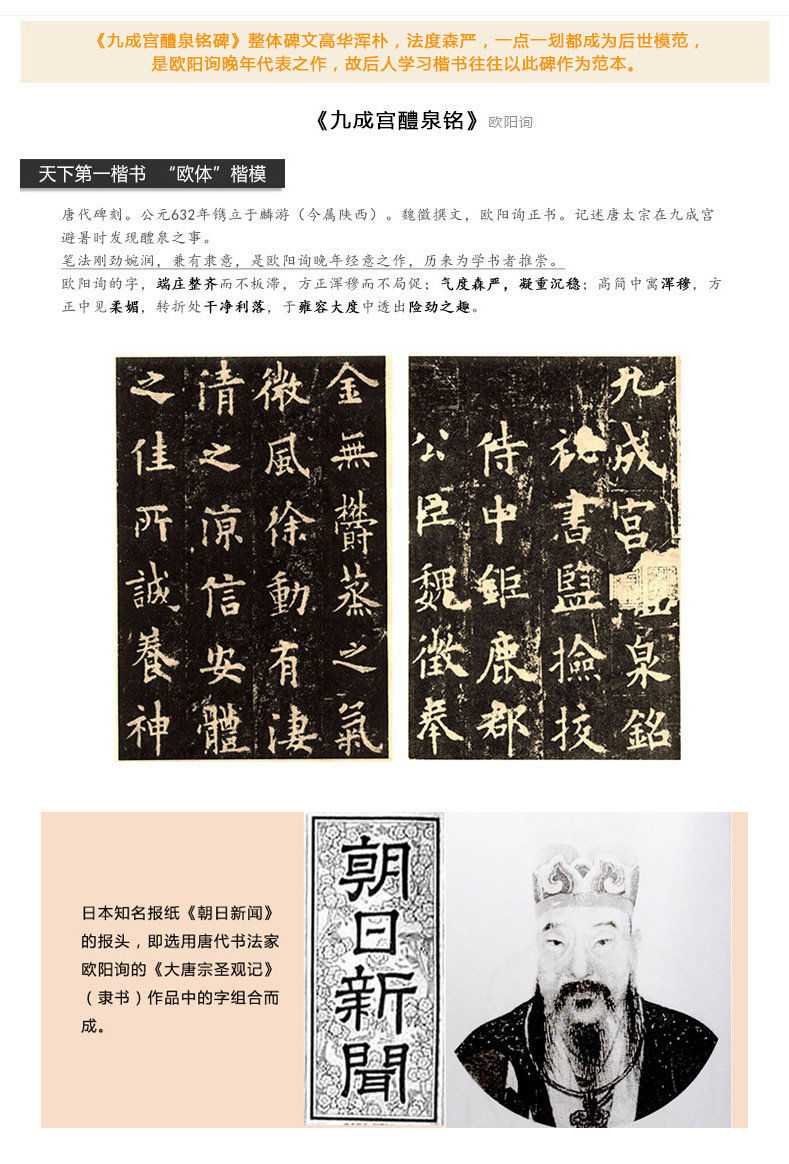 《九成宫醴泉铭碑》整体碑文高华浑朴，法度森严，一点一划都成为后世模范，
是欧阳询晚年代表之作，故后人学习楷书往往以此碑作为范本。
《九成宫醴泉铭》欧阳询
天下第一楷书 “欧体”楷模
唐代碑刻。公元632年镌立于麟游（今属陕西）。魏徵撰文，欧阳询正书。记述唐太宗在九成宫
避暑时发现醴泉之事。
笔法刚劲婉润，兼有隶意，是欧阳询晚年经意之作，历来为学书者推崇。
欧阳询的字，端庄整齐而不板滞，方正浑穆而不局促；气度森严，凝重沉稳；高简中寓浑穆，方
正中见柔媚，转折处干净利落，于雍容大度中透出险劲之趣。
九成宫泉銘
祕書監撿挍
侍中鉅鹿郡
公臣魏徵奉
金無欝蒸之氣
微風徐動有凄
清之涼信安體
之佳所誠養神
日本知名报纸《朝日新闻》
的报头，即选用唐代书法家
欧阳询的《大唐宗圣观记》
（隶书）作品中的字组合而
成。
朝日新聞